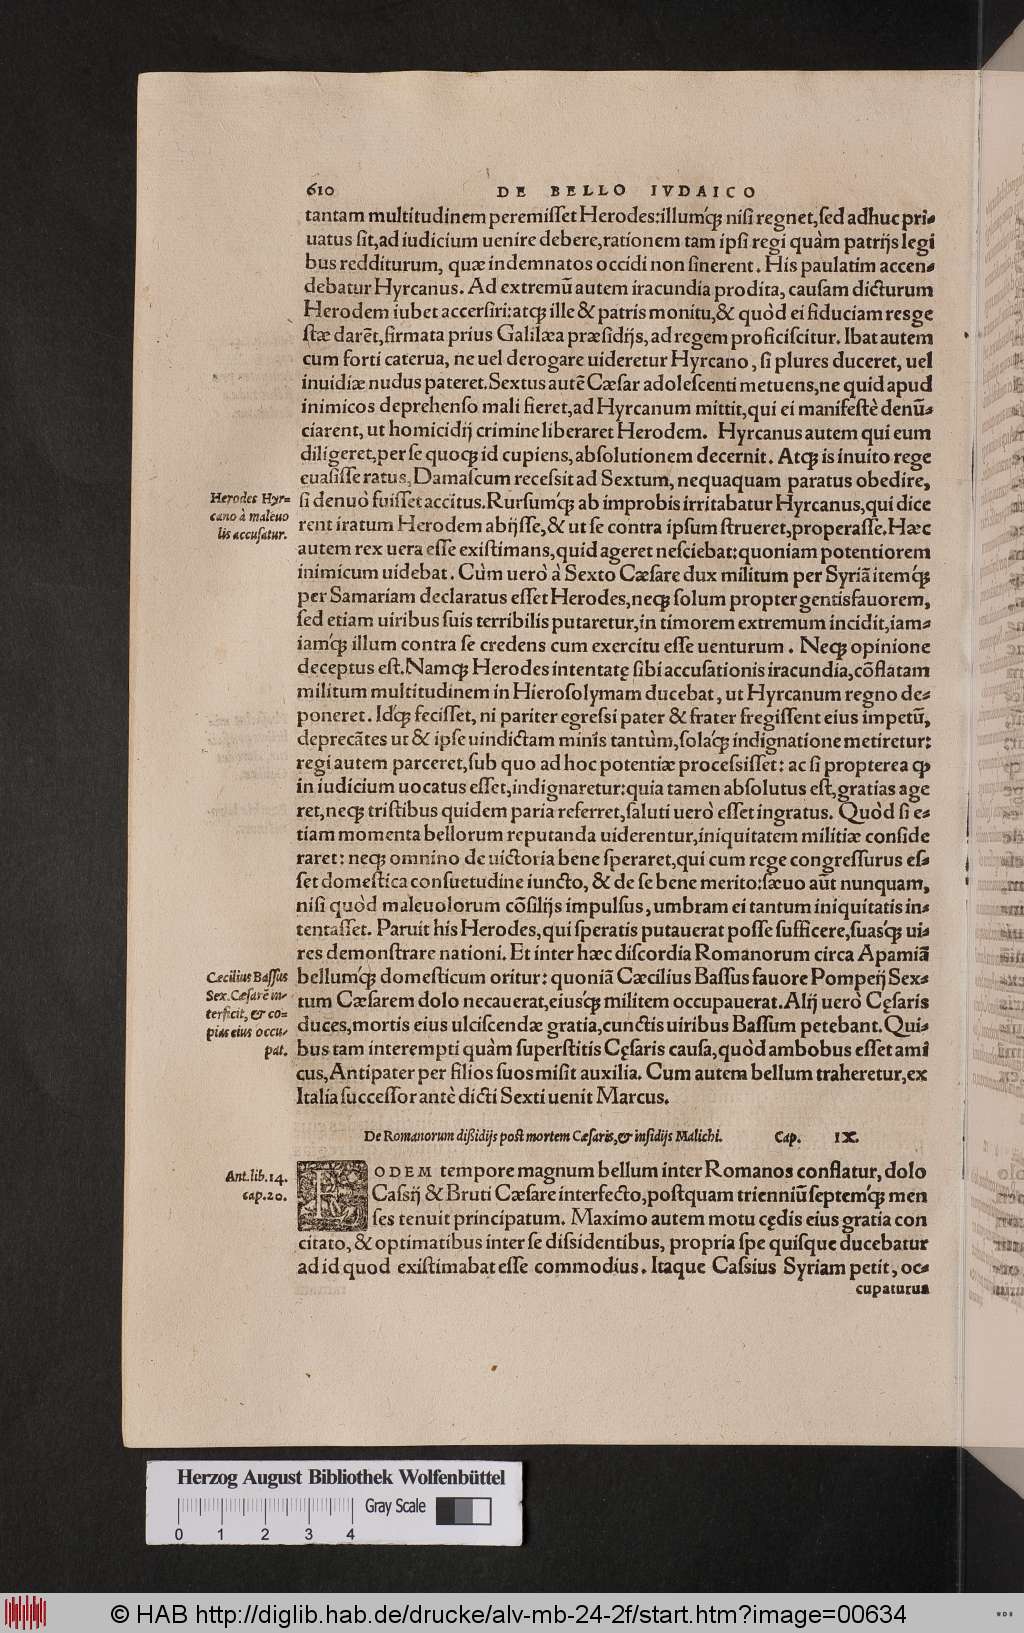 610 DE BELLO IVDAICO
tantam multitudinem peremiſſet Herodes:illumq́ꝫ niſi regnet,ſed adhuc pri-
uatus ſit,ad iudicium uenire debere,rationem tam ipſi regi quàm patrijs legi
bus redditurum, quæ indemnatos occidi non ſinerent. His paulatim accen-
debatur Hyrcanus. Ad extremũ autem iracundia prodita, cauſam dicturum
Herodem iubet accerſiri:atqꝫ ille & patris monitu,& quòd ei fiduciam res ge
ſtæ darẽt,firmata prius Galilæa præſidijs, ad regem proficiſcitur. Ibat autem
cum forti caterua, ne uel derogare uideretur Hyrcano, ſi plures duceret, uel
inuidiæ nudus pateret.Sextus autẽ Cæſar adoleſcenti metuens,ne quid apud
inimicos deprehenſo mali fieret,ad Hyrcanum mittit,qui ei manifeſtè denũ-
ciarent, ut homicidij crimine liberaret Herodem. Hyrcanus autem qui eum
diligeret,per ſe quoqꝫ id cupiens,abſolutionem decernit. Atqꝫ is inuito rege
euaſiſſe ratus, Damaſcum receſsit ad Sextum, nequaquam paratus obedire,
Herodes Hyr-
cano à maleuo
lis accuſatur.
ſi denuò fuiſſet accitus.Rurſumq́ꝫ ab improbis irritabatur Hyrcanus,qui dice
rent iratum Herodem abijſſe,& ut ſe contra ipſum ſtrueret,properaſſe.Hæc
autem rex uera eſſe exiſtimans,quid ageret neſciebat:quoniam potentiorem
inimicum uidebat. Cùm uerò à Sexto Cæſare dux militum per Syriã itemq́ꝫ
per Samariam declaratus eſſet Herodes,neqꝫ ſolum propter gentis fauorem,
ſed etiam uiribus ſuis terribilis putaretur,in timorem extremum incidit,iam-
iamq́ꝫ illum contra ſe credens cum exercitu eſſe uenturum. Neqꝫ opinione
deceptus eſt.Namqꝫ Herodes intentatę ſibi accuſationis iracundia,cõflatam
militum multitudinem in Hieroſolymam ducebat, ut Hyrcanum regno de-
poneret. Idq́ꝫ feciſſet, ni pariter egreſsi pater & frater fregiſſent eius impetũ,
deprecãtes ut & ipſe uindictam minis tantùm,ſolaq́ꝫ indignatione metiretur:
regi autem parceret,ſub quo ad hoc potentiæ proceſsiſſet: ac ſi propterea ꝙ
in iudicium uocatus eſſet,indignaretur:quia tamen abſolutus eſt,gratias age
ret,neqꝫ triſtibus quidem paria referret,ſaluti uerò eſſet ingratus. Quòd ſi e-
tiam momenta bellorum reputanda uiderentur,iniquitatem militiæ conſide
raret: neqꝫ omnino de uictoria bene ſperaret,qui cum rege congreſſurus eſ-
ſet domeſtica conſuetudine iuncto, & de ſe bene merito:ſæuo aũt nunquam,
niſi quòd maleuolorum cõſilijs impulſus, umbram ei tantum iniquitatis in-
tentaſſet. Paruit his Herodes,qui ſperatis putauerat poſſe ſufficere,ſuasq́ꝫ ui-
res demonſtrare nationi. Et inter hæc diſcordia Romanorum circa Apamiã
Cæcilius Baſſus
Sex.Cæſarẽ in-
terficit, & co-
pias eius occu-
pat.
bellumq́ꝫ domeſticum oritur: quoniã Cæcilius Baſſus fauore Pompeij Sex-
tum Cæſarem dolo necauerat,eiusq́ꝫ militem occupauerat.Alij uerò Cęſaris
duces,mortis eius ulciſcendæ gratia,cunctis uiribus Baſſum petebant.Qui-
bus tam interempti quàm ſuperſtitis Cęſaris cauſa,quòd ambobus eſſet ami
cus,Antipater per filios ſuos miſit auxilia. Cum autem bellum traheretur,ex
Italia ſucceſſor antè dicti Sexti uenit Marcus.
De Romanorum dißidijs poſt mortem Cæſaris,& inſidijs Malichi. Cap. IX.
Ant.lib.14.
cap.20.
EODEM tempore magnum bellum inter Romanos conflatur, dolo
Caſsij & Bruti Cæſare interfecto,poſtquam trienniũ ſeptemq́ꝫ men
ſes tenuit principatum. Maximo autem motu cędis eius gratia con
citato, & optimatibus inter ſe diſsidentibus, propria ſpe quiſque ducebatur
ad id quod exiſtimabat eſſe commodius. Itaque Caſsius Syriam petit, oc-
cupaturus
Herzog August Bibliothek Wolfenbüttel
Gray Scale
0 1 2 3 4
© HAB http://diglib.hab.de/drucke/alv-mb-24-2f/start.htm?image=00634